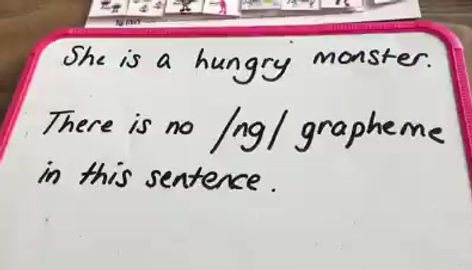 She is a hungry monster.
There is no /ng/ grapheme
in this sentence.